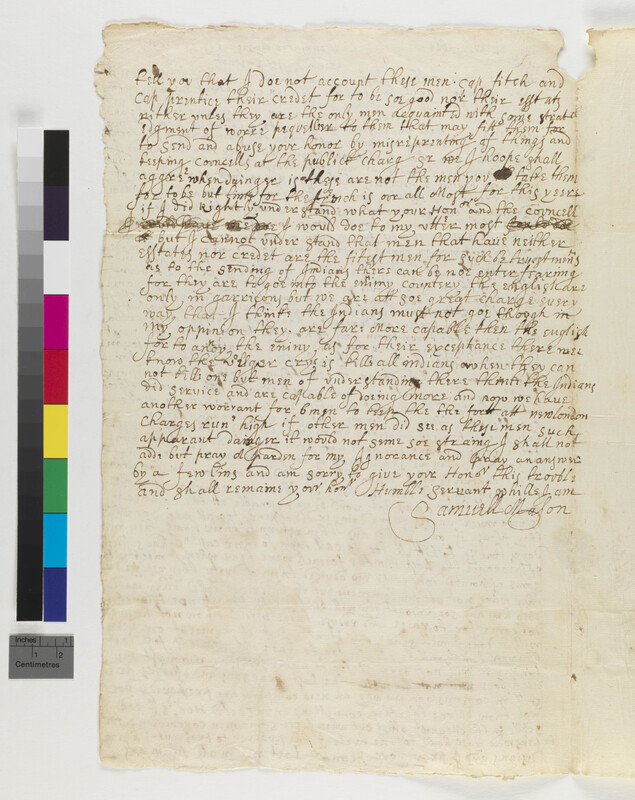 tell you that I doe not account these men Cap fitch and
Cap prentics their credet for to be soe good nor their esstats
neither unles they are the only men acquanted with some strat
to send and abuse your honor by misreprenting of things and
keeping councells at the publick charg or we I hoope shall
aggre when dainger is these are not the men you take them
for to be but time for the french is our all most for this yeere
if I did Rightly under stand what your Honor and the councell
I would doe to my utter most
but I Cannot under stand that men that have neither
esstates nor credet are the fitest men for such
as to the sending of Indians there can be noe
for they are to goe into the eniny countery the english are
only in garrisons but we are att soe great charge every
way that I thinke the Indians must not goe though in
my oppineon they are fare more capable then the english
for to anoy the eniny as for their exceptance there wee
know the vulger cry is kill all indians when they can
not kill one but men of understanding there thinke the Indians
did service and are capable of doeing more and now we have
another worrant for 6 men to keep the the fort att newlondon
Charges run high if other men did see as these men such
apparant dainger it would not seme soe straing I shall not
add but pray pardon for my Ignorance and pray an answer
by a few lins and am sorry to give your Honor this trouble
and shall remaine your honr Humble servant whille I am
Samuell Mason
Inches 1
1 2
Centimetres